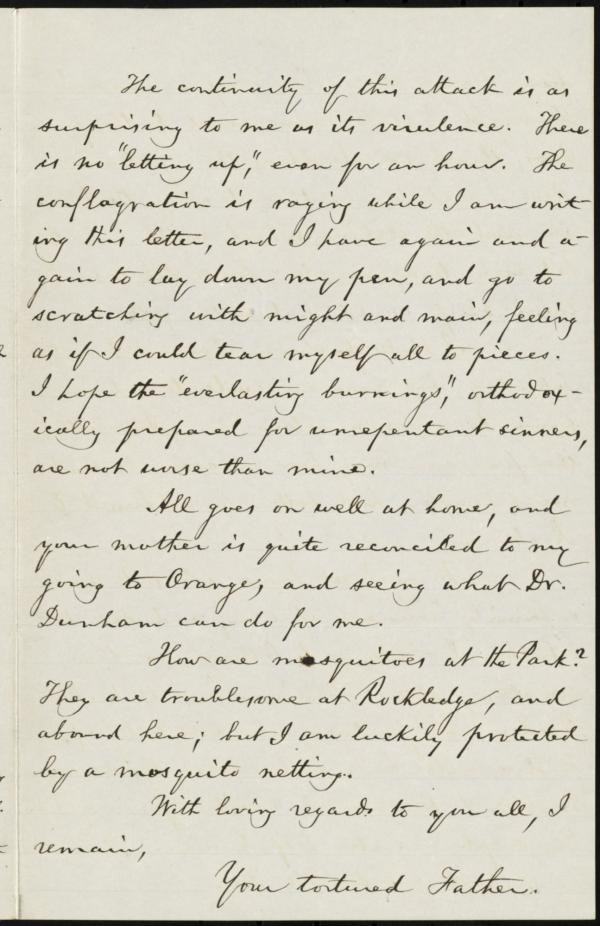 The continuity of this attack is as
surprising to me as its virulence. There
is no "letting up," even for an hour. The
conflagration is raging while I am writ-
ing this letter, and I have again and a-
gain to lay down my pen, and go to
scratching with might and main, feeling
as if I could tear myself all to pieces.
I hope the "everlasting burnings," orthodox-
ically prepared for unrepentant sinners,
are not worse than mine.
All goes on well at home, and
your mother is quite reconciled to my
going to Orange, and seeing what Dr.
Dunham can do for me.
How are mosquitoes at the Park?
They are troublesome at Rockledge, and
abound here; but I am luckily protected
by a mosquito netting.
With loving regards to you all, I
remain,
Your tortured Father.